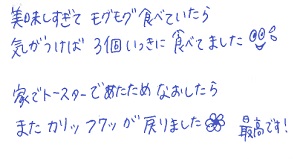 美味しすぎて モグモグ食べていたら
気がつけば 3個いっきに食べてました
家でトースターであたためなおしたら
またカリッフワッが戻りました 最高です!